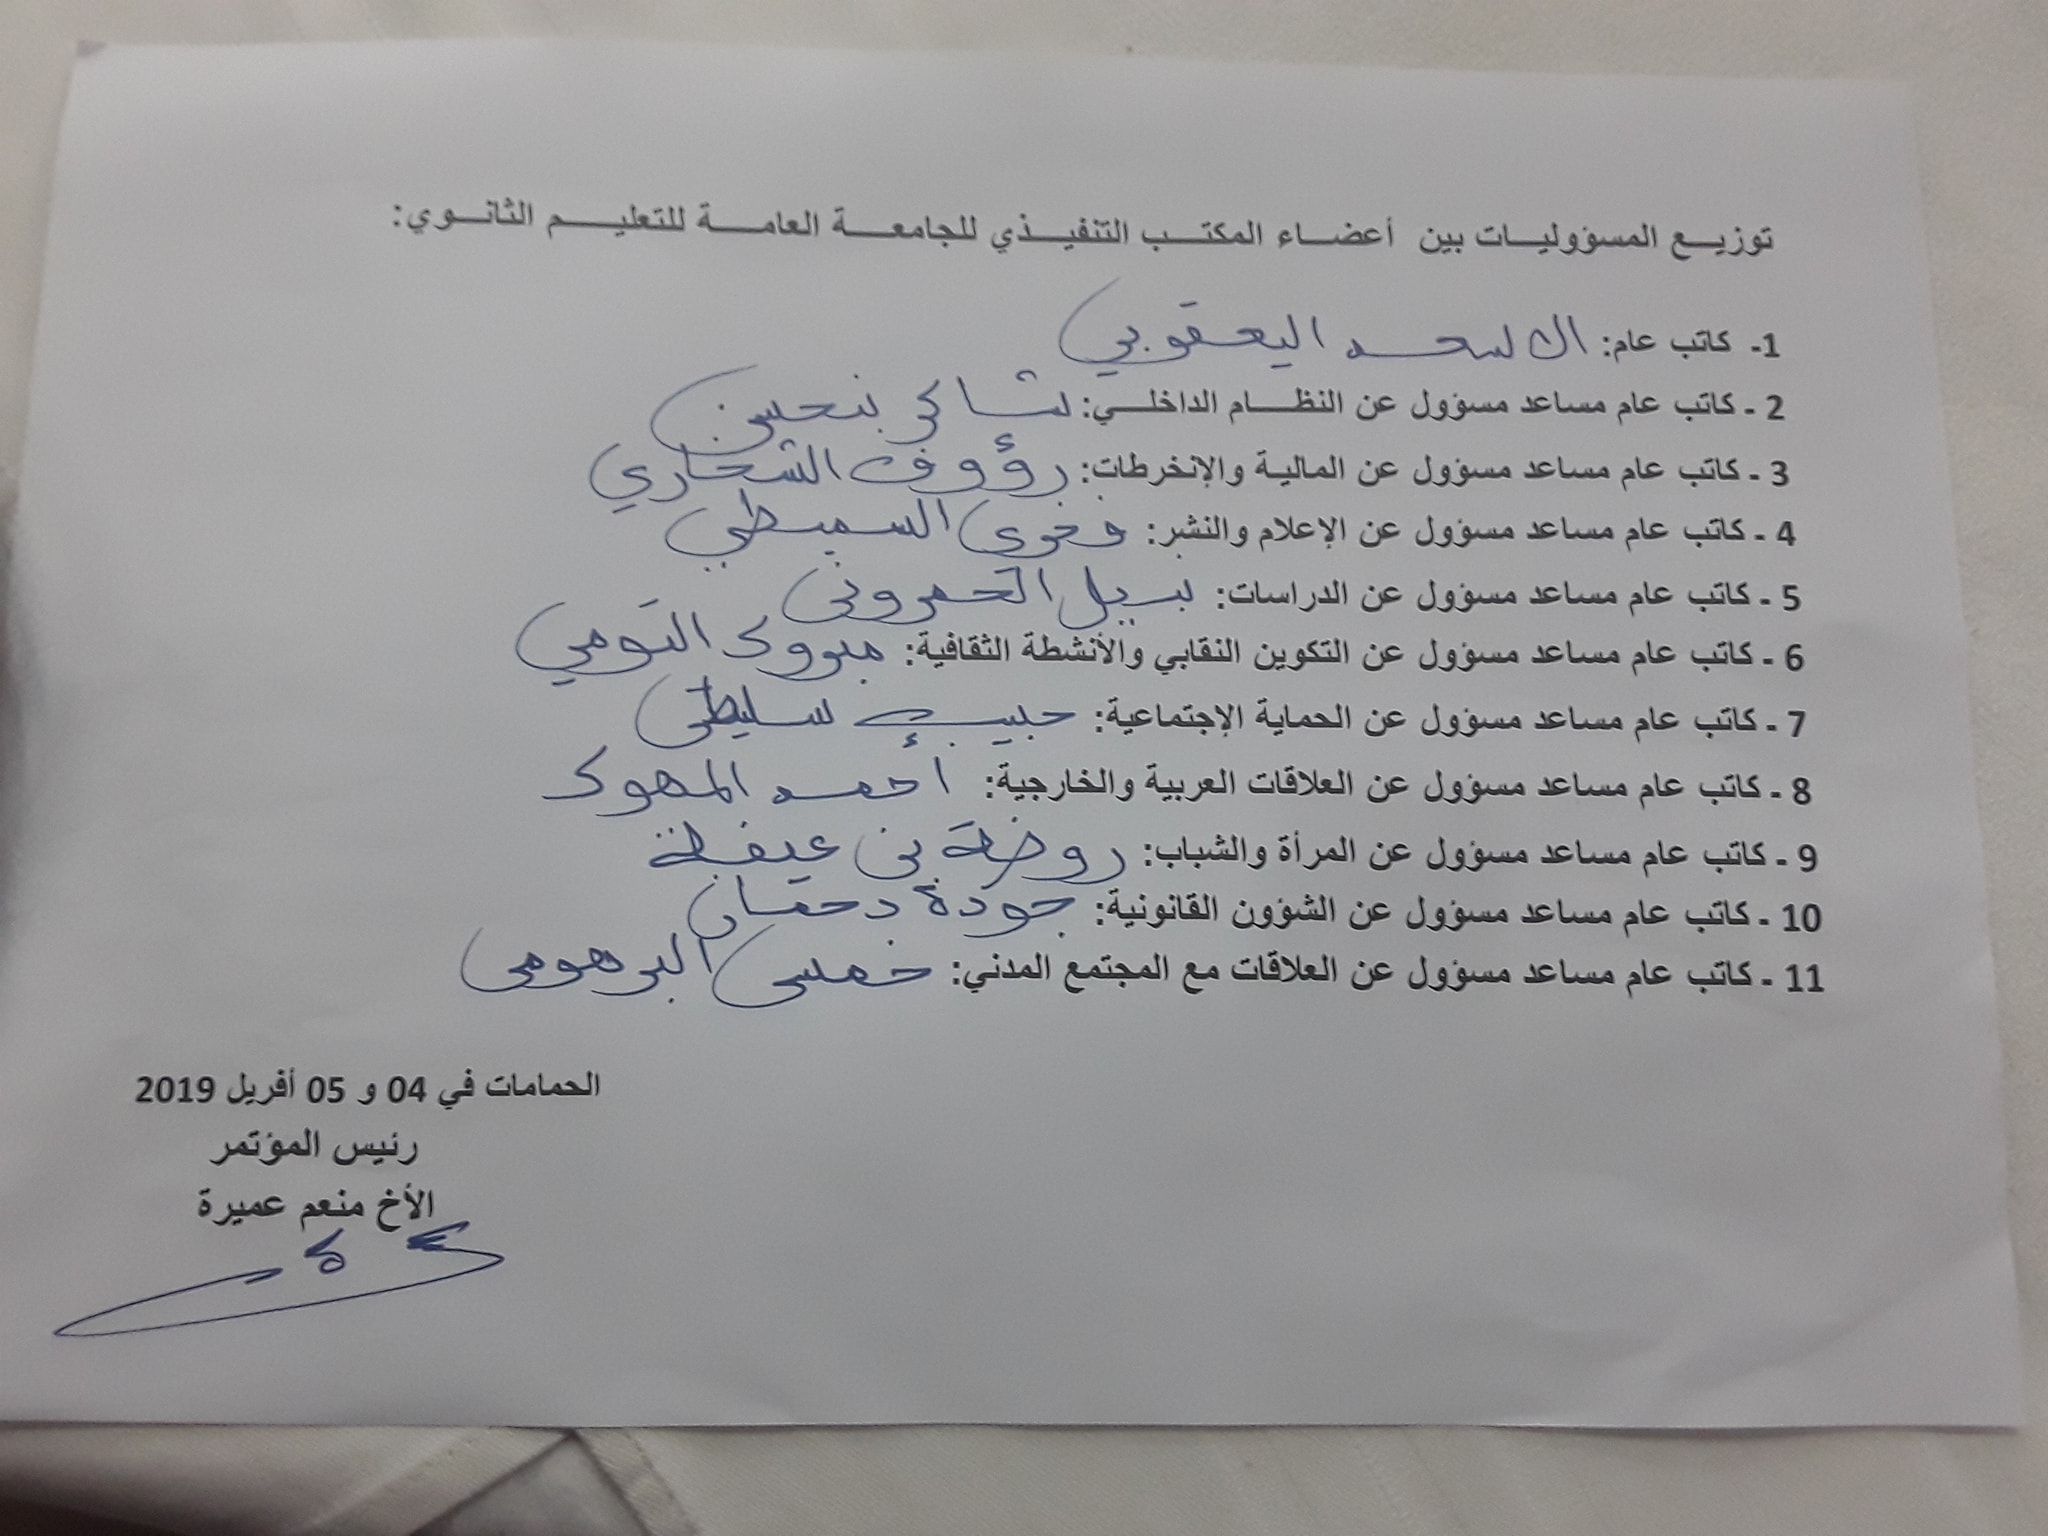 توزيع المسؤوليات بين أعضاء المكتب التنفيذي للجامعة العامة للتعليم الثانوي:
1- كاتب عام: الاسعد اليعقوبي
2 - كاتب عام مساعد مسؤول عن النظام الداخلي: شاكر بنحسن
3 - كاتب عام مساعد مسؤول عن المالية والإنخرطات: رؤوف الشخاري
4 - كاتب عام مساعد مسؤول عن الإعلام والنشر: فخري السميطي
5 - كاتب عام مساعد مسؤول عن الدراسات: نبيل الحمروني
6 - كاتب عام مساعد مسؤول عن التكوين النقابي والأنشطة الثقافية: مبروك التومي
7 - كاتب عام مساعد مسؤول عن الحماية الإجتماعية: حبيب سليطي
8 - كاتب عام مساعد مسؤول عن العلاقات العربية والخارجية: أحمد المهوك
9 - كاتب عام مساعد مسؤول عن المرأة والشباب: روضة بن عيفة
10 - كاتب عام مساعد مسؤول عن الشؤون القانونية: جودة دحمان
11 - كاتب عام مساعد مسؤول عن العلاقات مع المجتمع المدني: خميس البرهومي
الحمامات في 04 و 05 أفريل 2019
رئيس المؤتمر
الأخ منعم عميرة